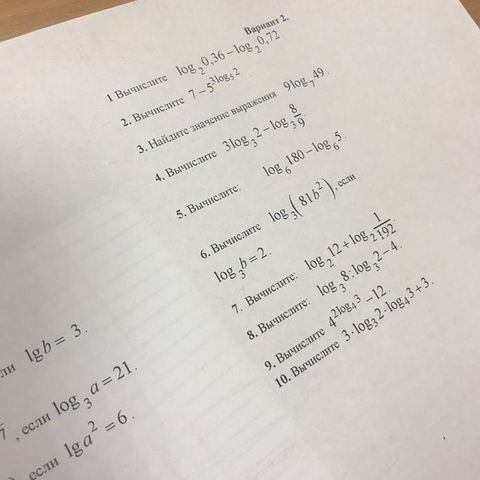 Вариант 2.
1 Вычислите log₂0,36 – log₂0,72.
2. Вычислите 7 – 5^(3log₅2)
3. Найдите значение выражения 9log₇49.
4. Вычислите 3log₃2 – log₃ 8/9.
5. Вычислите: log₆180 – log₆5
6. Вычислите log₃(81b²), если
log₃b = 2.
7. Вычислите: log₂12 + log₂ 1/192.
8. Вычислите: log₃8 : log₃2 – 4.
9. Вычислите 4^(2log₄3) – 12.
10. Вычислите 3·log₃2·log₄3 + 3.
lgb = 3.
, если log₃a = 21.
если lga² = 6.